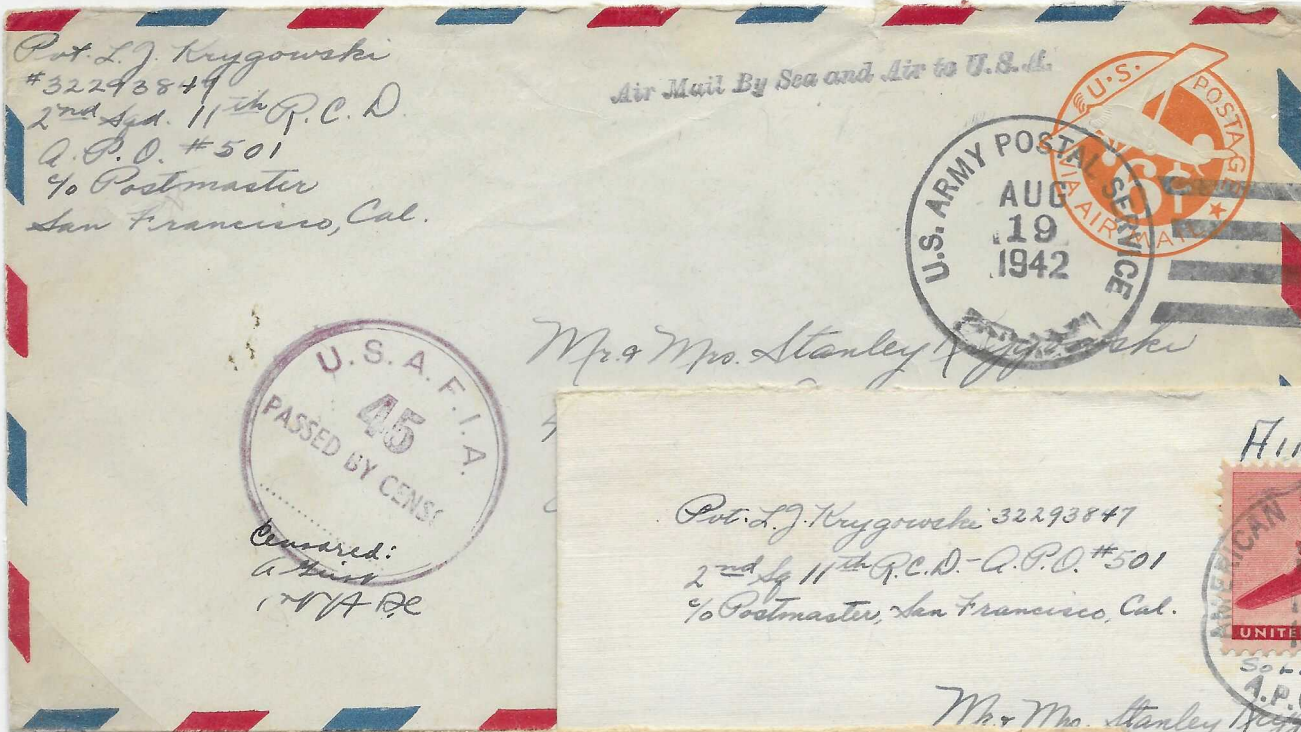 Pvt. L. J. Krygowski
#32293849
2nd Sqd. 11th R. C. D.
A. P. O. #501
c/o Postmaster
San Francisco, Cal.
Air Mail By Sea and Air to U.S.A.
U.S. POSTAGE
6¢
VIA AIR MAIL
U.S. ARMY POSTAL SERVICE
AUG
19
1942
Mr. & Mrs. Stanley Krygowski
U.S.A.F.I.A.
45
PASSED BY CENSO
Censored:
Pvt. L. J. Krygowski 32293847
2nd Sq 11th R.C.D.- A.P.O. #501
c/o Postmaster, San Francisco, Cal.
AMERICAN
UNITE
A.P.
Mr. & Mrs. Stanley Kryg